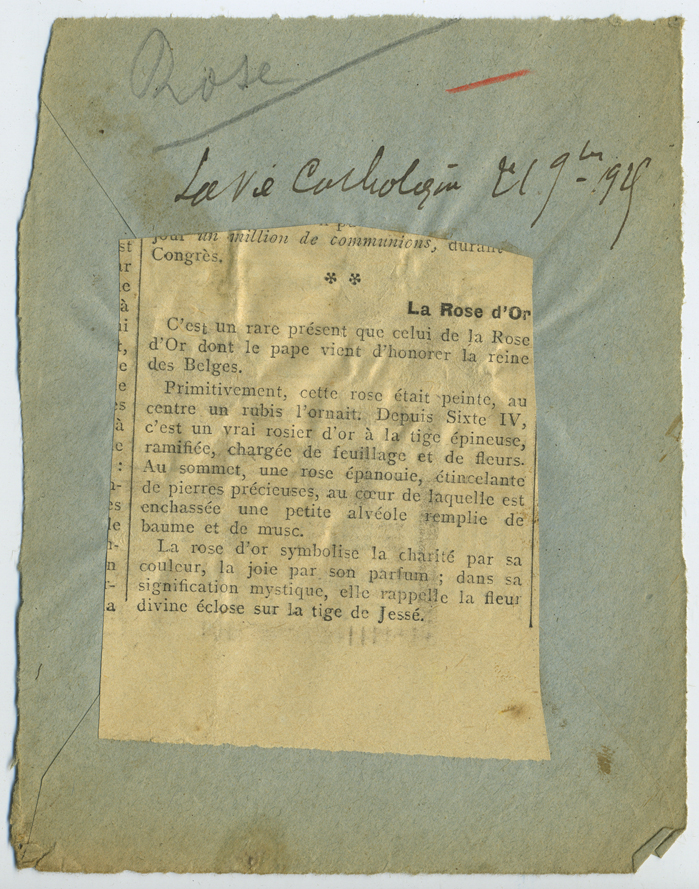 Rose
La Vie Catholique 21 9bre 1925
jour un million de communions, durant
Congrès.
* *
La Rose d'Or
C'est un rare présent que celui de la Rose
d'Or dont le pape vient d'honorer la reine
des Belges.
Primitivement, cette rose était peinte, au
centre un rubis l'ornait. Depuis Sixte IV,
c'est un vrai rosier d'or à la tige épineuse,
ramifiée, chargée de feuillage et de fleurs.
Au sommet, une rose épanouie, étincelante
de pierres précieuses, au cœur de laquelle est
enchassée une petite alvéole remplie de
baume et de musc.
La rose d'or symbolise la charité par sa
couleur, la joie par son parfum ; dans sa
signification mystique, elle rappelle la fleur
divine éclose sur la tige de Jessé.